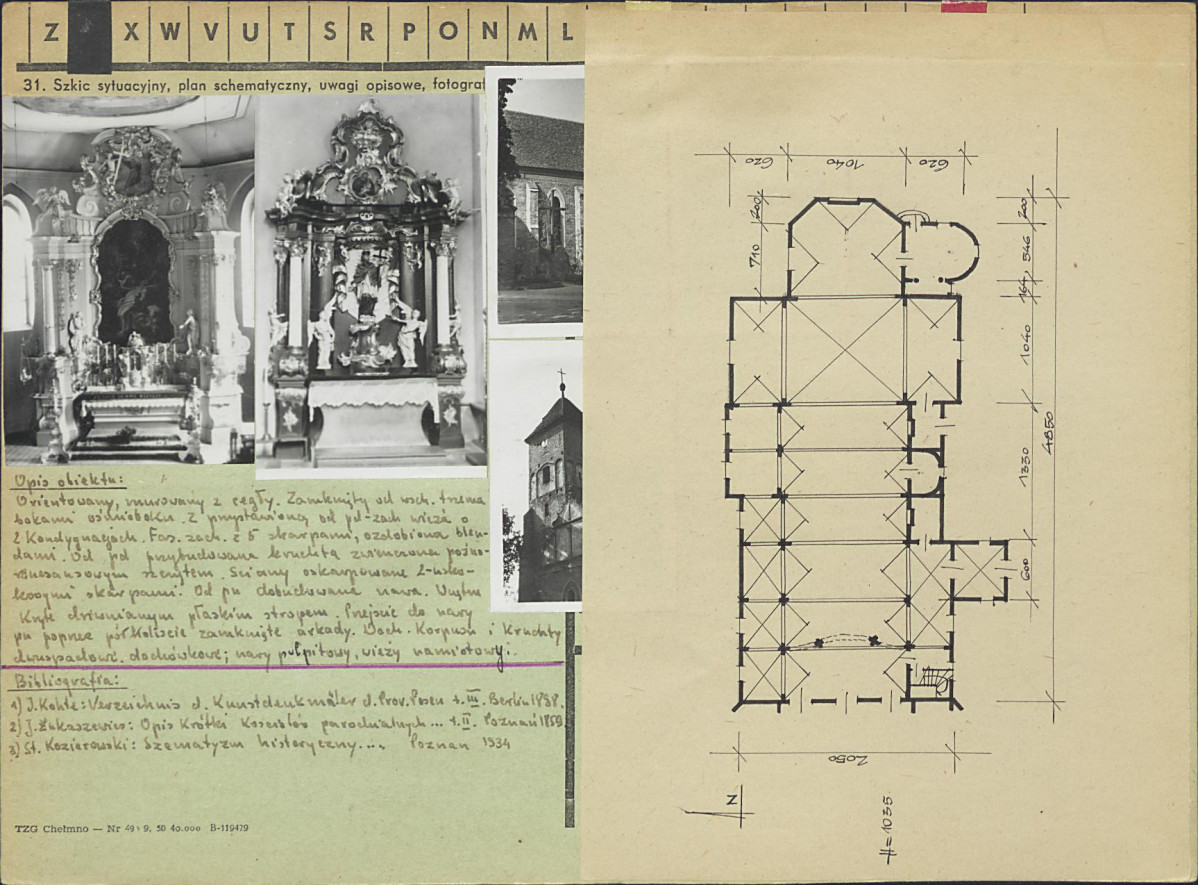 Z X W V U T S R P O N M L
31. Szkic sytuacyjny, plan schematyczny, uwagi opisowe, fotograf
Opis obiektu:
Orientowany, murowany z cegły. Zamknięty od wsch. trzema
bokami ośmioboku. Z przystawioną od pd-zach wieżą o
2 Kondygnacjach. Fas. zach. z 5 skarpami, ozdobiona blen-
dami. Od pd przybudowana kruchta zwieńczona późno-
renesansowym szczytem. Ściany oskarpowane 2-usko-
kowymi skarpami. Od pn dobudowana nawa. Wnętrze
Kryte drewnianym płaskim stropem. Przejście do nawy
pn poprzez półkoliście zamknięte arkady. Dach. Korpusu i Kruchty
dwuspadowe. dachówkowe; nawy pulpitowy, wieży namiotowy.
Bibliografia:
1) J. Kohte: Verzeichnis d. Kunstdenkmäler d. Prov. Posen t. III. Berlin 1898.
2) J. Łukaszewicz: Opis Krótki Kościołów parochialnych... t. II. Poznań 1859
3) St. Kozierowski: Szematyzm historyczny.... Poznań 1934
TZG Chełmno — Nr 49 9. 50 40.000 B-119479
620 1040 620
200
710
200
546
164
1040
1330
600
4850
2050
N
H=1035